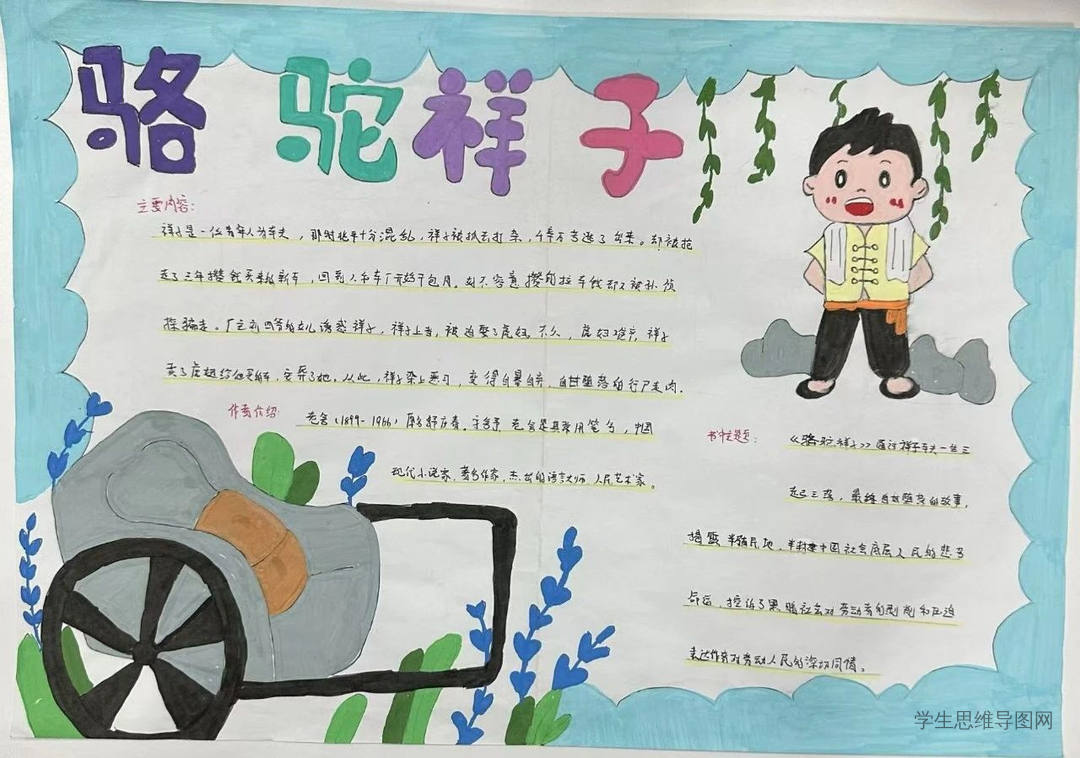 骆驼祥子
主要内容:
祥子是一位青年人力车夫，那时北平十分混乱，祥子被抓去打杂，千辛万苦逃了出来。却被抢
走了三年攒钱买来的新车，回到人和车厂开始干包月。好不容易攒的拉车钱却又被孙侦
探骗走。厂主刘四爷的女儿诱惑祥子，祥子上当，被迫娶了虎妞。不久，虎妞难产，祥子
卖了虎妞给他买的车，安葬了她。从此，祥子染上恶习，变得自暴自弃，自甘堕落的行尸走肉.
作者介绍: 老舍（1899-1966）原名舒庆春，字舍予 老舍是其常用笔名，中国
现代小说家，著名作家，杰出的语言大师 人民艺术家。
书中主题: 《骆驼祥子》通过祥子车夫一生三
起三落，最终自甘堕落的故事,
揭露 半殖民地、半封建中国社会底层人民的悲多
命运，控诉了黑暗社会对劳动者的剥削和压迫
表达作者对劳动人民的深切同情。
学生思维导图网